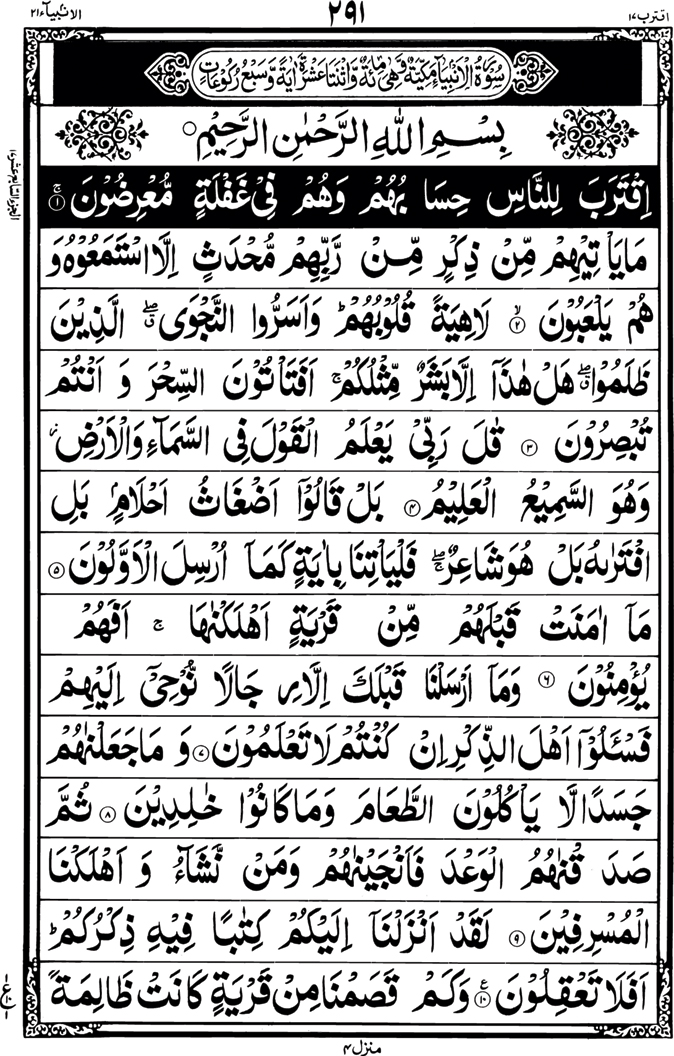 اقترب ١٧
٢٩١
الانبیآء ٢١
سُوْرَةُ الْاَنْۢبِیَآءِ مَكِّیَّةٌ وَّهِیَ مِائَةٌ وَّاثْنَتَا عَشْرَةَ اٰیَةً وَّسَبْعُ رُكُوْعَاتٍ
بِسْمِ اللّٰهِ الرَّحْمٰنِ الرَّحِیْمِ ○
اِقْتَرَبَ لِلنَّاسِ حِسَابُهُمْ وَهُمْ فِیْ غَفْلَةٍ مُّعْرِضُوْنَ ۚ‏ ١
مَا یَاْتِیْهِمْ مِّنْ ذِكْرٍ مِّنْ رَّبِّهِمْ مُّحْدَثٍ اِلَّا اسْتَمَعُوْهُ وَ
هُمْ یَلْعَبُوْنَ ۙ ٢ لَاهِیَةً قُلُوْبُهُمْ ؕ وَاَسَرُّوا النَّجْوَی ۖۗ الَّذِیْنَ
ظَلَمُوْا ۖۗ هَلْ هٰذَاۤ اِلَّا بَشَرٌ مِّثْلُكُمْ ۚ اَفَتَاْتُوْنَ السِّحْرَ وَ اَنْتُمْ
تُبْصِرُوْنَ ٣ قٰلَ رَبِّیْ یَعْلَمُ الْقَوْلَ فِی السَّمَآءِ وَالْاَرْضِ ؗ
وَهُوَ السَّمِیْعُ الْعَلِیْمُ ٤ بَلْ قَالُوْۤا اَضْغَاثُ اَحْلَامٍۭ بَلِ
افْتَرٰىهُ بَلْ هُوَ شَاعِرٌ ۖۚ فَلْیَاْتِنَا بِاٰیَةٍ كَمَاۤ اُرْسِلَ الْاَوَّلُوْنَ ٥
مَاۤ اٰمَنَتْ قَبْلَهُمْ مِّنْ قَرْیَةٍ اَهْلَكْنٰهَا ۚ اَفَهُمْ
یُؤْمِنُوْنَ ٦ وَمَاۤ اَرْسَلْنَا قَبْلَكَ اِلَّا رِجَالًا نُّوْحِیْۤ اِلَیْهِمْ
فَسْـَٔلُوْۤا اَهْلَ الذِّكْرِ اِنْ كُنْتُمْ لَا تَعْلَمُوْنَ ٧ وَ مَا جَعَلْنٰهُمْ
جَسَدًا لَّا یَاْكُلُوْنَ الطَّعَامَ وَمَا كَانُوْا خٰلِدِیْنَ ٨ ثُمَّ
صَدَقْنٰهُمُ الْوَعْدَ فَاَنْجَیْنٰهُمْ وَمَنْ نَّشَآءُ وَ اَهْلَكْنَا
الْمُسْرِفِیْنَ ٩ لَقَدْ اَنْزَلْنَاۤ اِلَیْكُمْ كِتٰبًا فِیْهِ ذِكْرُكُمْ ؕ
اَفَلَا تَعْقِلُوْنَ ١٠ ع وَكَمْ قَصَمْنَا مِنْ قَرْیَةٍ كَانَتْ ظَالِمَةً
منزل ٤
الجزء السابع عشر ١٧
ع